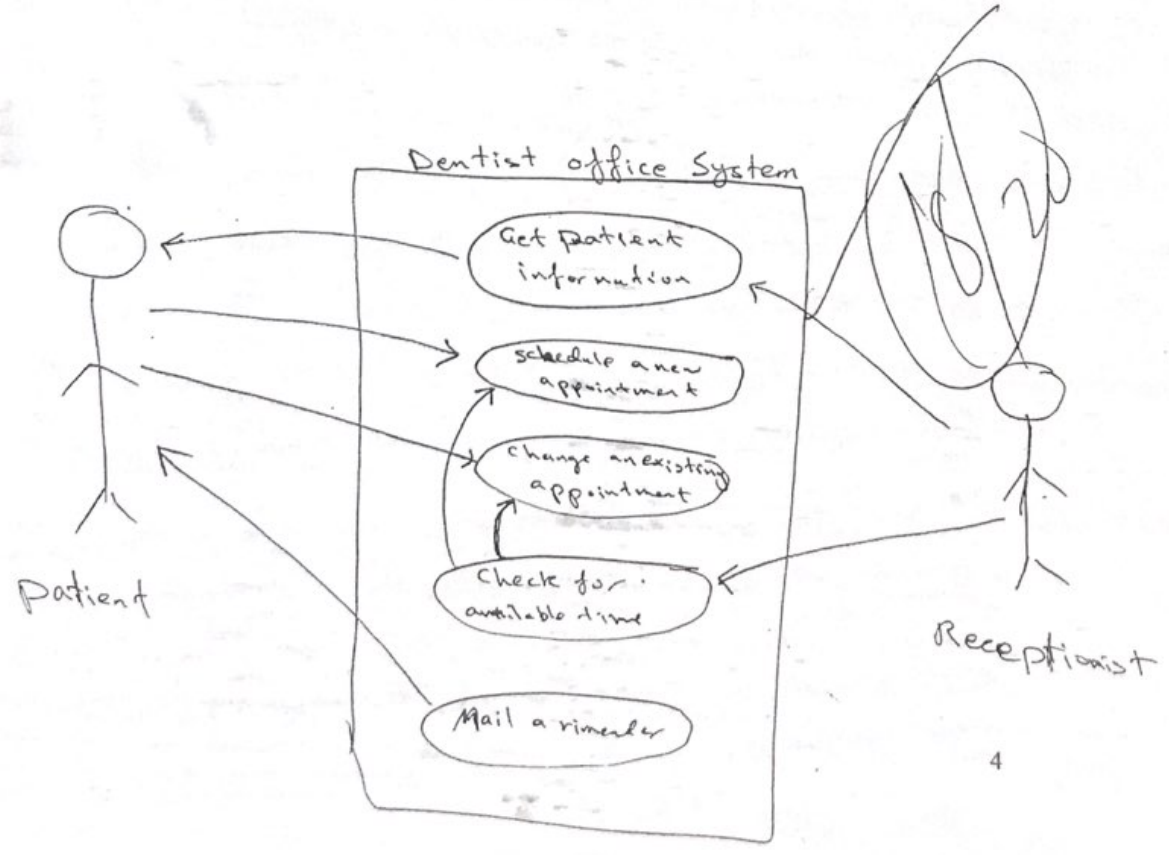 Dentist office System
Get patient
information
schedule a new
appointment
change an existing
appointment
Check for
available time
Mail a rimender
patient
Receptionist
4